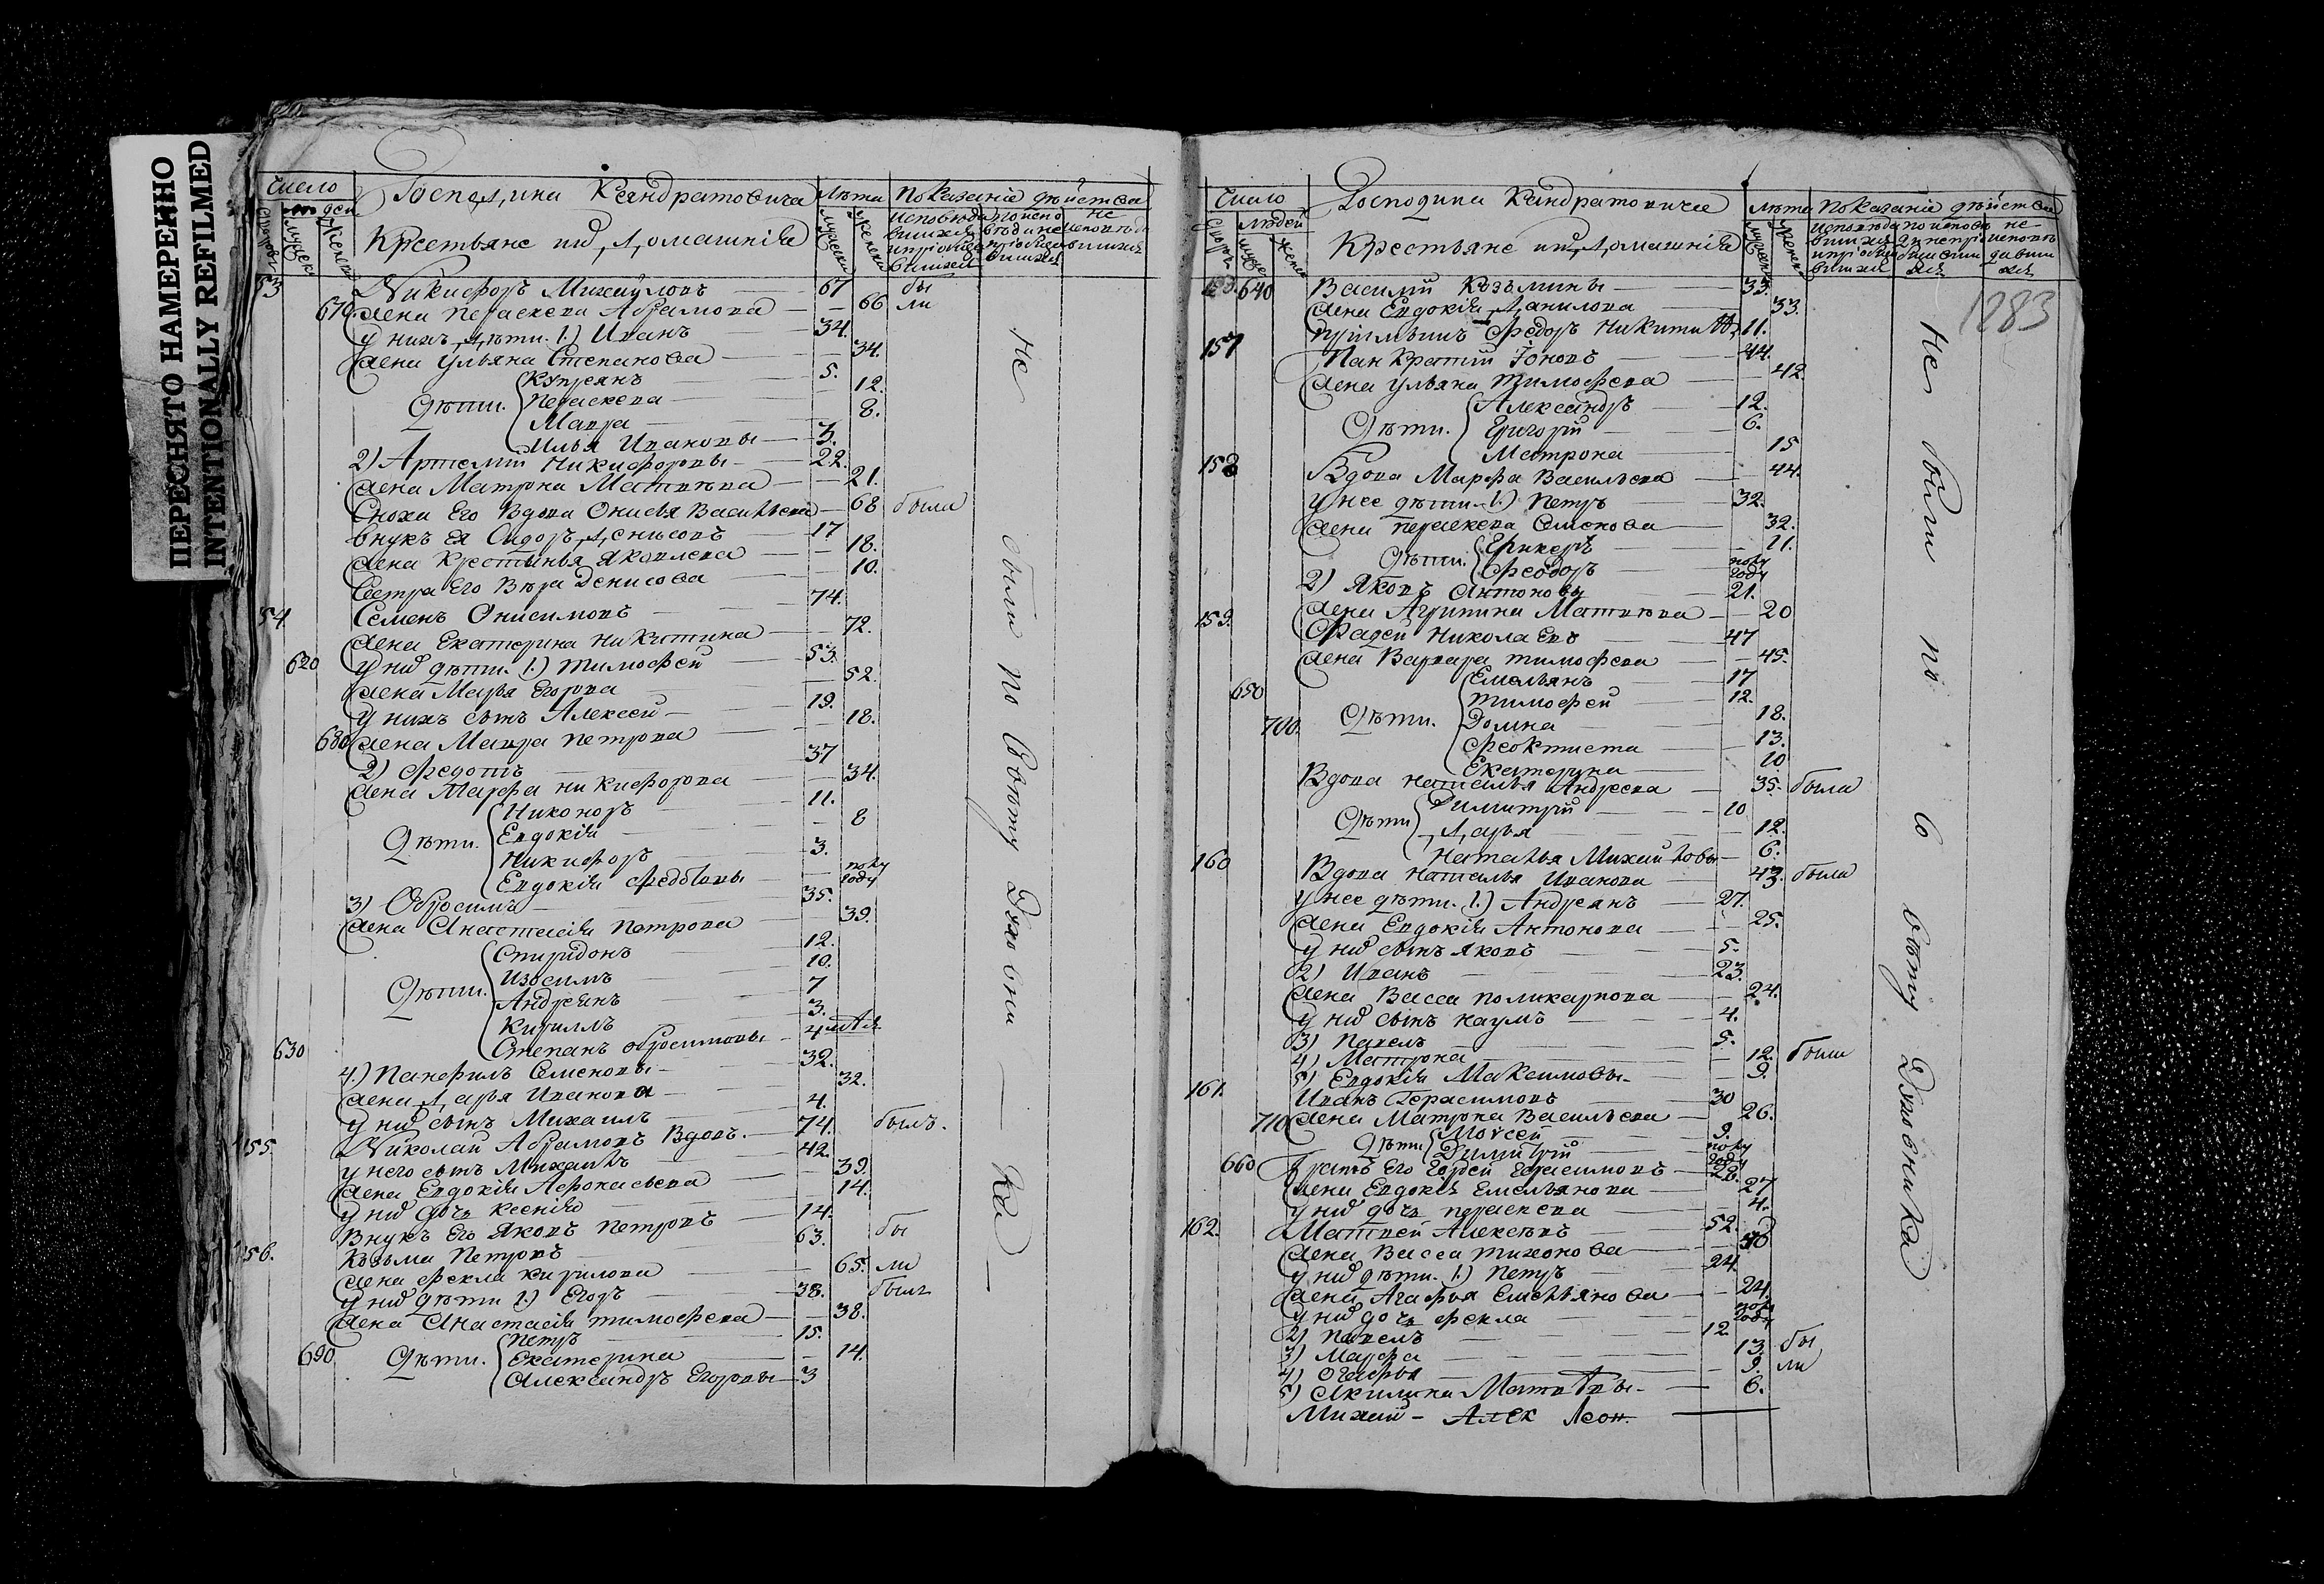 ПЕРЕСНЯТО НАМЕРЕННО
INTENTIONALLY REFILMED
Число
Господина Кандратовича
Лѣта
Показаніе дѣйства
Крестьяне ихъ Домашнія
53 Никифоръ Михайловъ 67 бы
610 Жена Параскева Абрамова 66 ли
У нихъ дѣти. 1.) Иванъ 34.
Жена Ульяна Степанова 34.
Купреянъ 5.
Дѣти. Параскева 12.
Мавра 8.
Илья Ивановы 3.
2) Артемій Никифоровы 22.
Жена Матрона Матвѣева 21.
Сноха Его Вдова Онисья Васильева 68 была
Внукъ ея Сидоръ Денисовъ 17
Жена Крестинья Яковлева 18.
Сестра Его Вѣра Денисова 10.
54. Семенъ Онисимовъ 74.
Жена Екатерина Никитина 72.
620 У них дѣти. 1.) Тимофей 53.
Жена Марья Егорова 52.
У нихъ сынъ Алексей 19.
680 Жена Мавра Петрова 18.
2) Федотъ 37
Жена Марфа Никифорова 34.
Никоноръ 11.
Дѣти. Евдокія 8
Никифоръ 3.
Евдокія Федотовы полу году
3) Обросимъ 35.
Жена Анастасія Петрова 39.
Спиридонъ 12.
Изосимъ 10.
Дѣти. Андреянъ 7
Кириллъ 3.
630 Степанъ Обросимовы 4
4.) Панфилъ Семеновы 32.
Жена Дарья Иванова 32.
У них сынъ Михаилъ 4.
155. Николай Абрамовъ Вдовъ. 74. былъ.
У него сынъ Михаилъ 42.
Жена Евдокія Афонасьева 39.
У них дочь Ксенія 14.
Внукъ Его Яковъ Петровъ 14.
156. Козьма Петровъ 63. бы
Жена Фекла Кирилова 65. ли
У них дѣти 1.) Егоръ 38. былъ
Жена Анастасія Тимофеева 38.
Петръ 15.
690 Дѣти. Екатерина 14.
Александръ Егоровы 3
Не были по Совѣту Духовника
Число
Людей
Господина Кандратовича
Лѣта
Показаніе дѣйства
Крестьяне их Домашнія
1283
640 Василій Козьмины 33.
Жена Евдокія Данилова 33.
Пріимышъ Федоръ Никитинъ 11.
157 Панкратій Іоновъ 44.
Жена Ульяна Тимофеева 42.
Александръ 12.
Дѣти. Григорій 6.
Матрона 15
158 Вдова Марфа Васильева 44.
У нее дѣти. 1.) Петръ 32.
Жена Параскева Семенова 32.
11.
Дѣти. Феодоръ полу году
2) Яковъ Антоновы 21.
Жена Агрипина Матвѣева 20
159. Фадей Николаевъ 47
Жена Варвара Тимофеева 45.
Емельянъ 17
650 Тимофей 12.
700. Дѣти. Домна 18.
Феоктиста 13.
Екатерина 10
Вдова Наталья Андреева 35. была
Димитрій 10
Дѣти Дарья 12.
Наталья Михайловы 6.
160 Вдова Наталья Иванова 43. была
У нее дѣти. 1.) Андреянъ 27.
Жена Евдокія Антонова 25.
У них сынъ Яковъ 5.
2) Иванъ 23.
Жена Васса Поликарпова 24.
У них сынъ Наумъ 4.
3) Павелъ 5.
4) Матрона 12. были
5) Евдокія Максимовы 9.
161. Иванъ Герасимовъ 30
710 Жена Матрона Васильева 26.
Моѵсей 9.
Дѣти Димитрій полу году
660 Братъ Его Гордей Герасимовъ 26.
Жена Евдокія Емельянова 27
У них дочь Параскева 4.
162. Матвей Алексѣевъ 52.
Жена Васса Тихонова
У них дѣти. 1.) Петръ 24.
Жена Агафья Емельянова 24.
У них дочь Фекла полу году
2) Павелъ 12.
3) Марфа 13. бы
4) Огафья 9. ли
5) Акилина Матвѣевы 6.
Не были по Совѣту Духовника